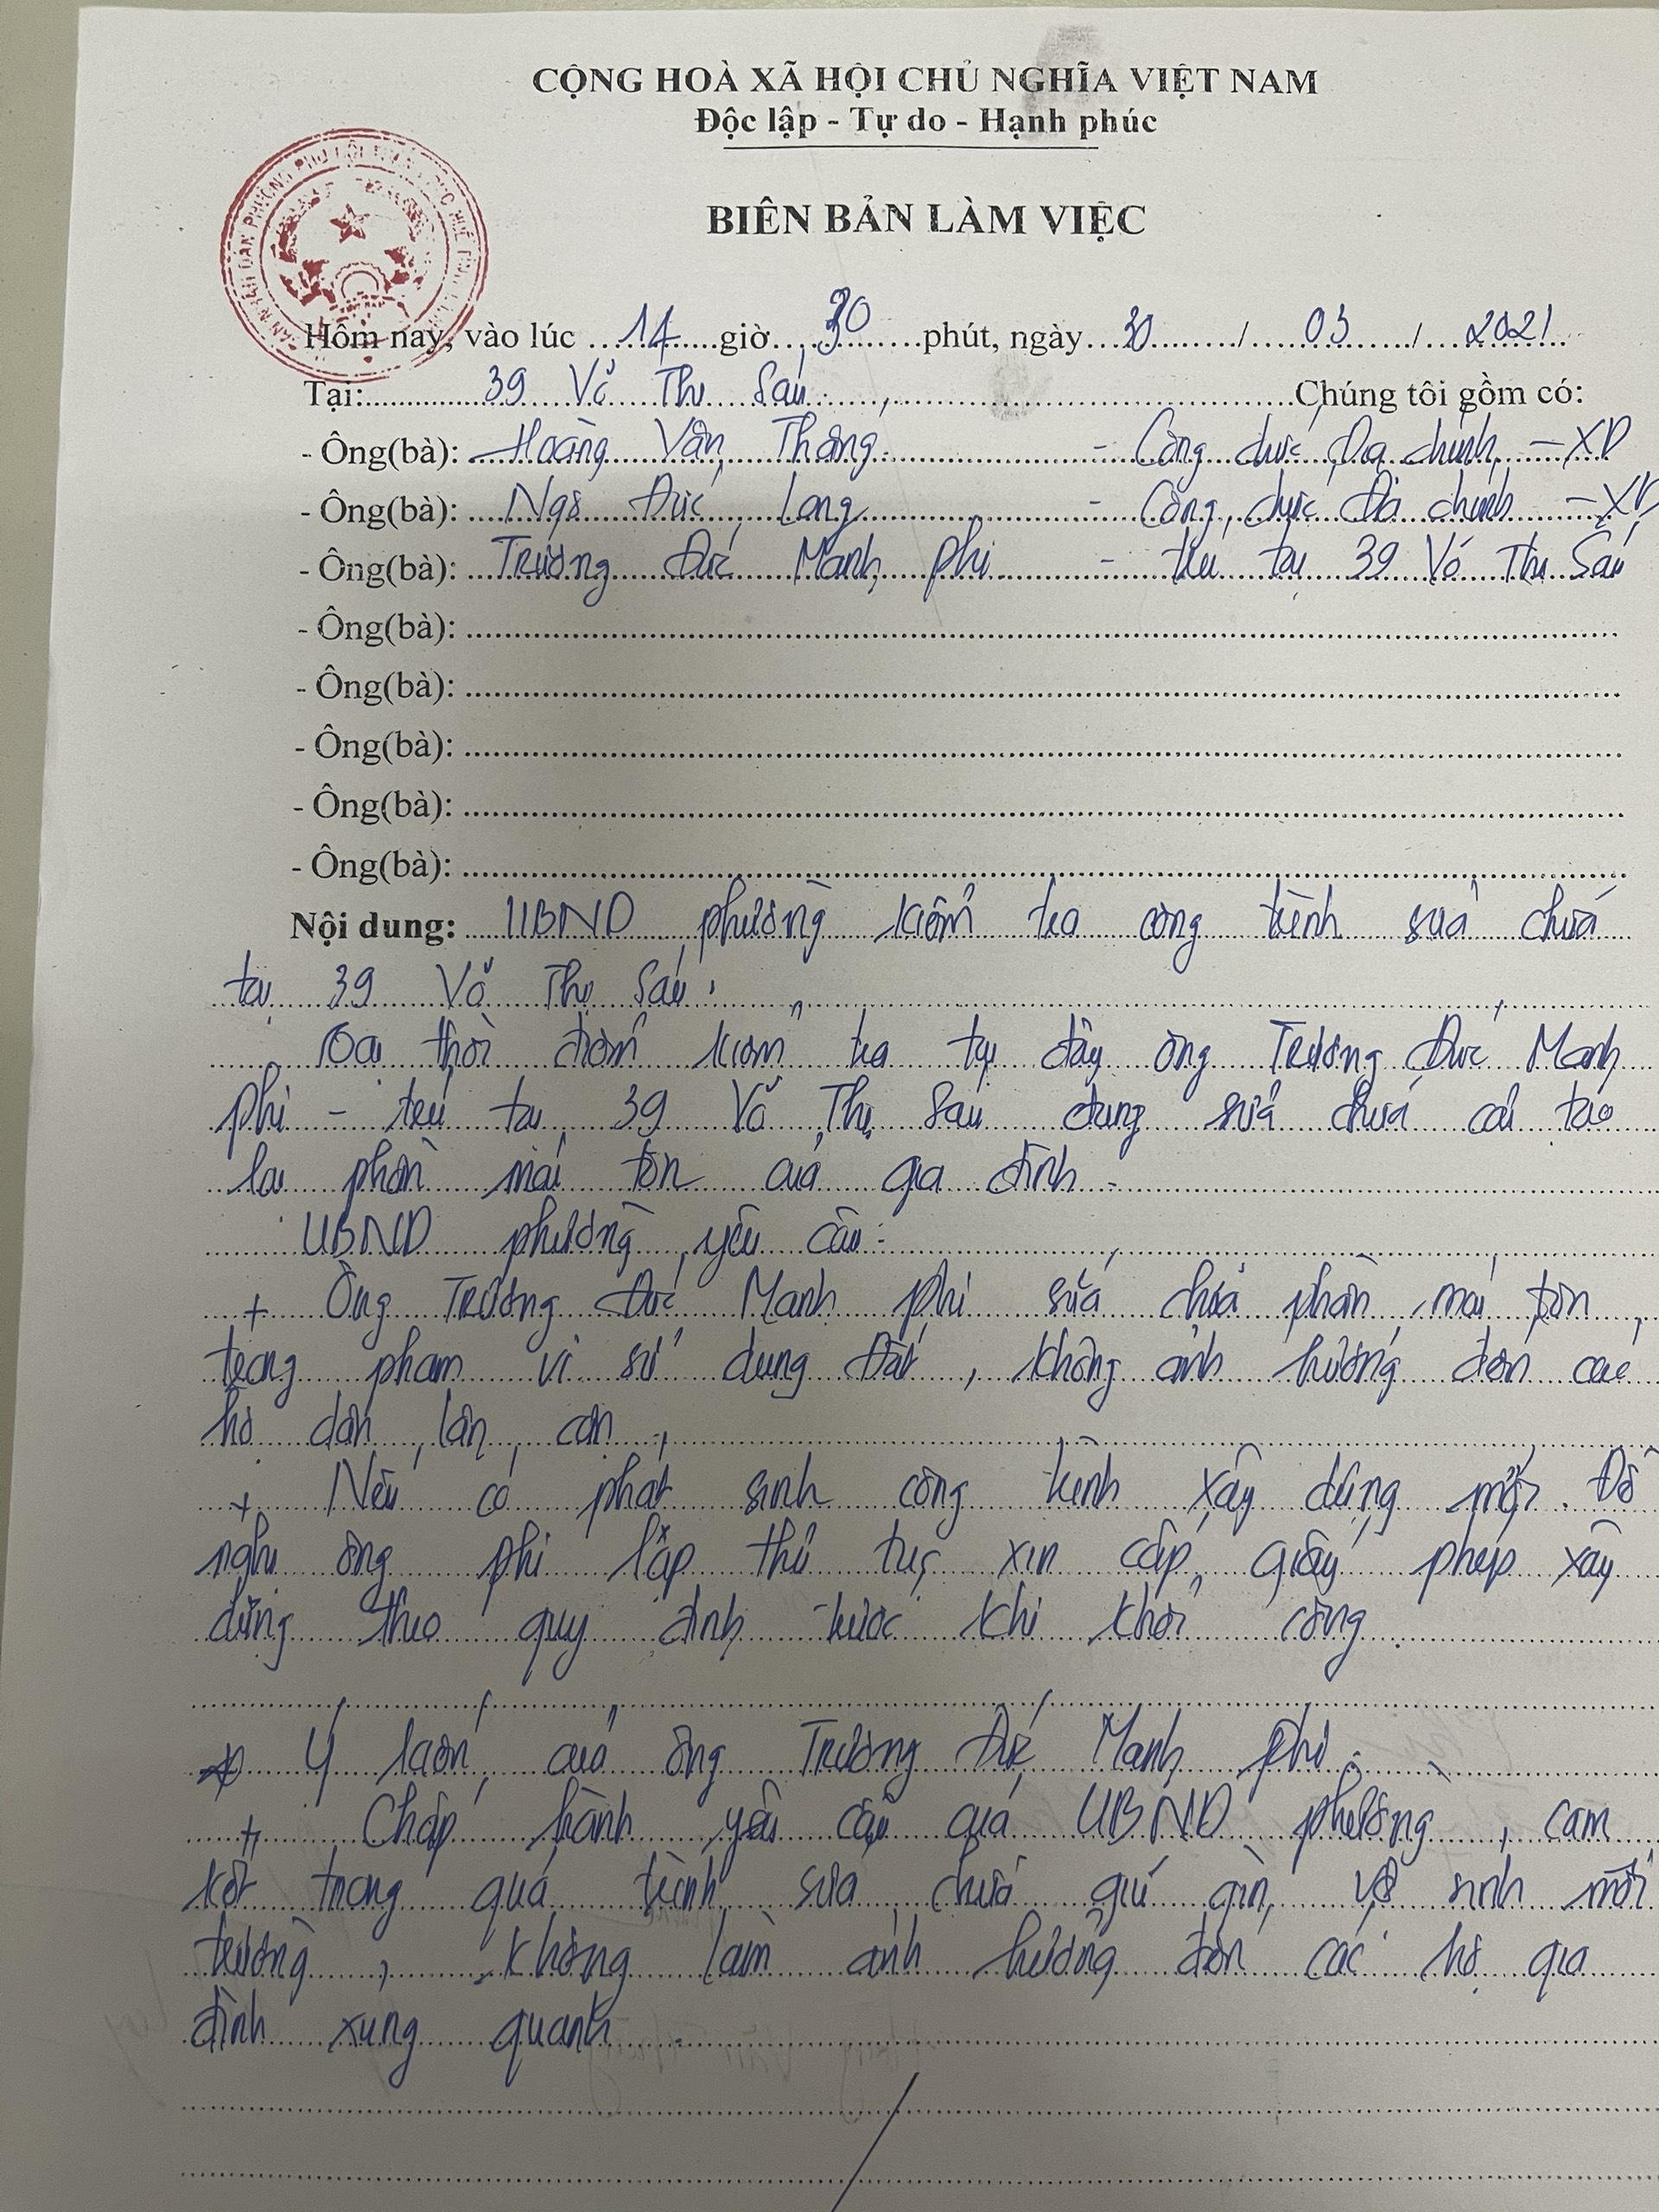 CỘNG HOÀ XÃ HỘI CHỦ NGHĨA VIỆT NAM
Độc lập - Tự do - Hạnh phúc
BIÊN BẢN LÀM VIỆC
Hôm nay, vào lúc 14 giờ 30 phút, ngày 30 / 03 / 2021
Tại: 39 Võ Thị Sáu, Chúng tôi gồm có:
- Ông(bà): Hoàng Văn Thắng - Công chức Địa chính - XD
- Ông(bà): Ngô Đức Long - Công chức Địa chính - XD
- Ông(bà): Trương Đức Mạnh Phi - trú tại 39 Võ Thị Sáu
- Ông(bà):
- Ông(bà):
- Ông(bà):
- Ông(bà):
- Ông(bà):
Nội dung: UBND phường kiểm tra công trình sửa chữa
tại 39 Võ Thị Sáu.
thời điểm kiểm tra tại đây ông Trương Đức Mạnh
Phi - trú tại 39 Võ Thị Sáu đang sửa chữa cải tạo
lại phần mái tôn của gia đình.
UBND phường yêu cầu:
+ Ông Trương Đức Mạnh Phi sửa chữa phần mái tôn
trong phạm vi sử dụng đất, không ảnh hưởng đến các
hộ dân lân cận.
+ Nếu có phát sinh công trình xây dựng mới. Đề
nghị ông Phi lập thủ tục xin cấp giấy phép xây
dựng theo quy định trước khi khởi công.
* Ý kiến của ông Trương Đức Mạnh Phi:
+ Chấp hành yêu cầu của UBND phường, cam
kết trong quá trình sửa chữa giữ gìn vệ sinh môi
trường, không làm ảnh hưởng đến các hộ gia
đình xung quanh.